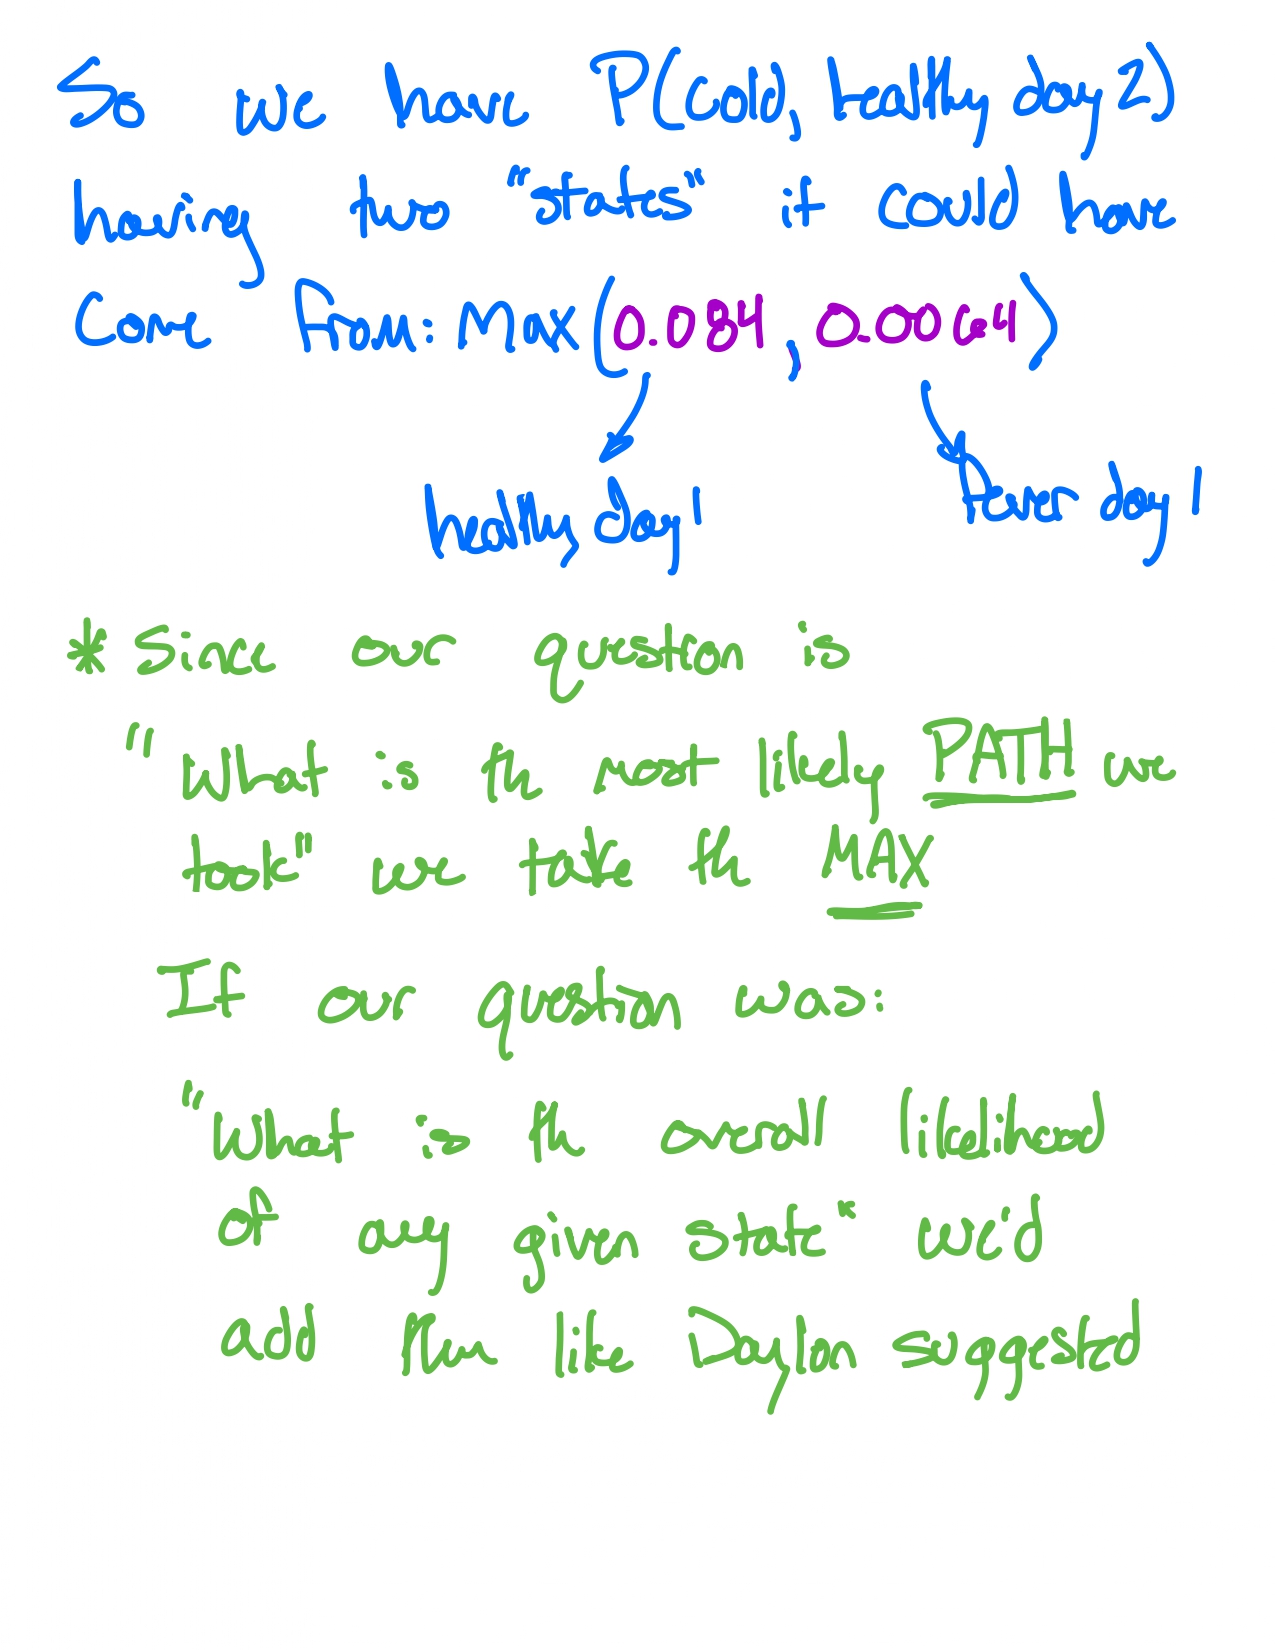 So we have P(cold, healthy day 2)
having two "states" it could have
come from: Max(0.084, 0.0064)
healthy day 1
fever day 1
* Since our question is
"What is th most likely PATH we
took" we take th MAX
If our question was:
"What is th overall likelihood
of any given state" we'd
add them like Daylon suggested